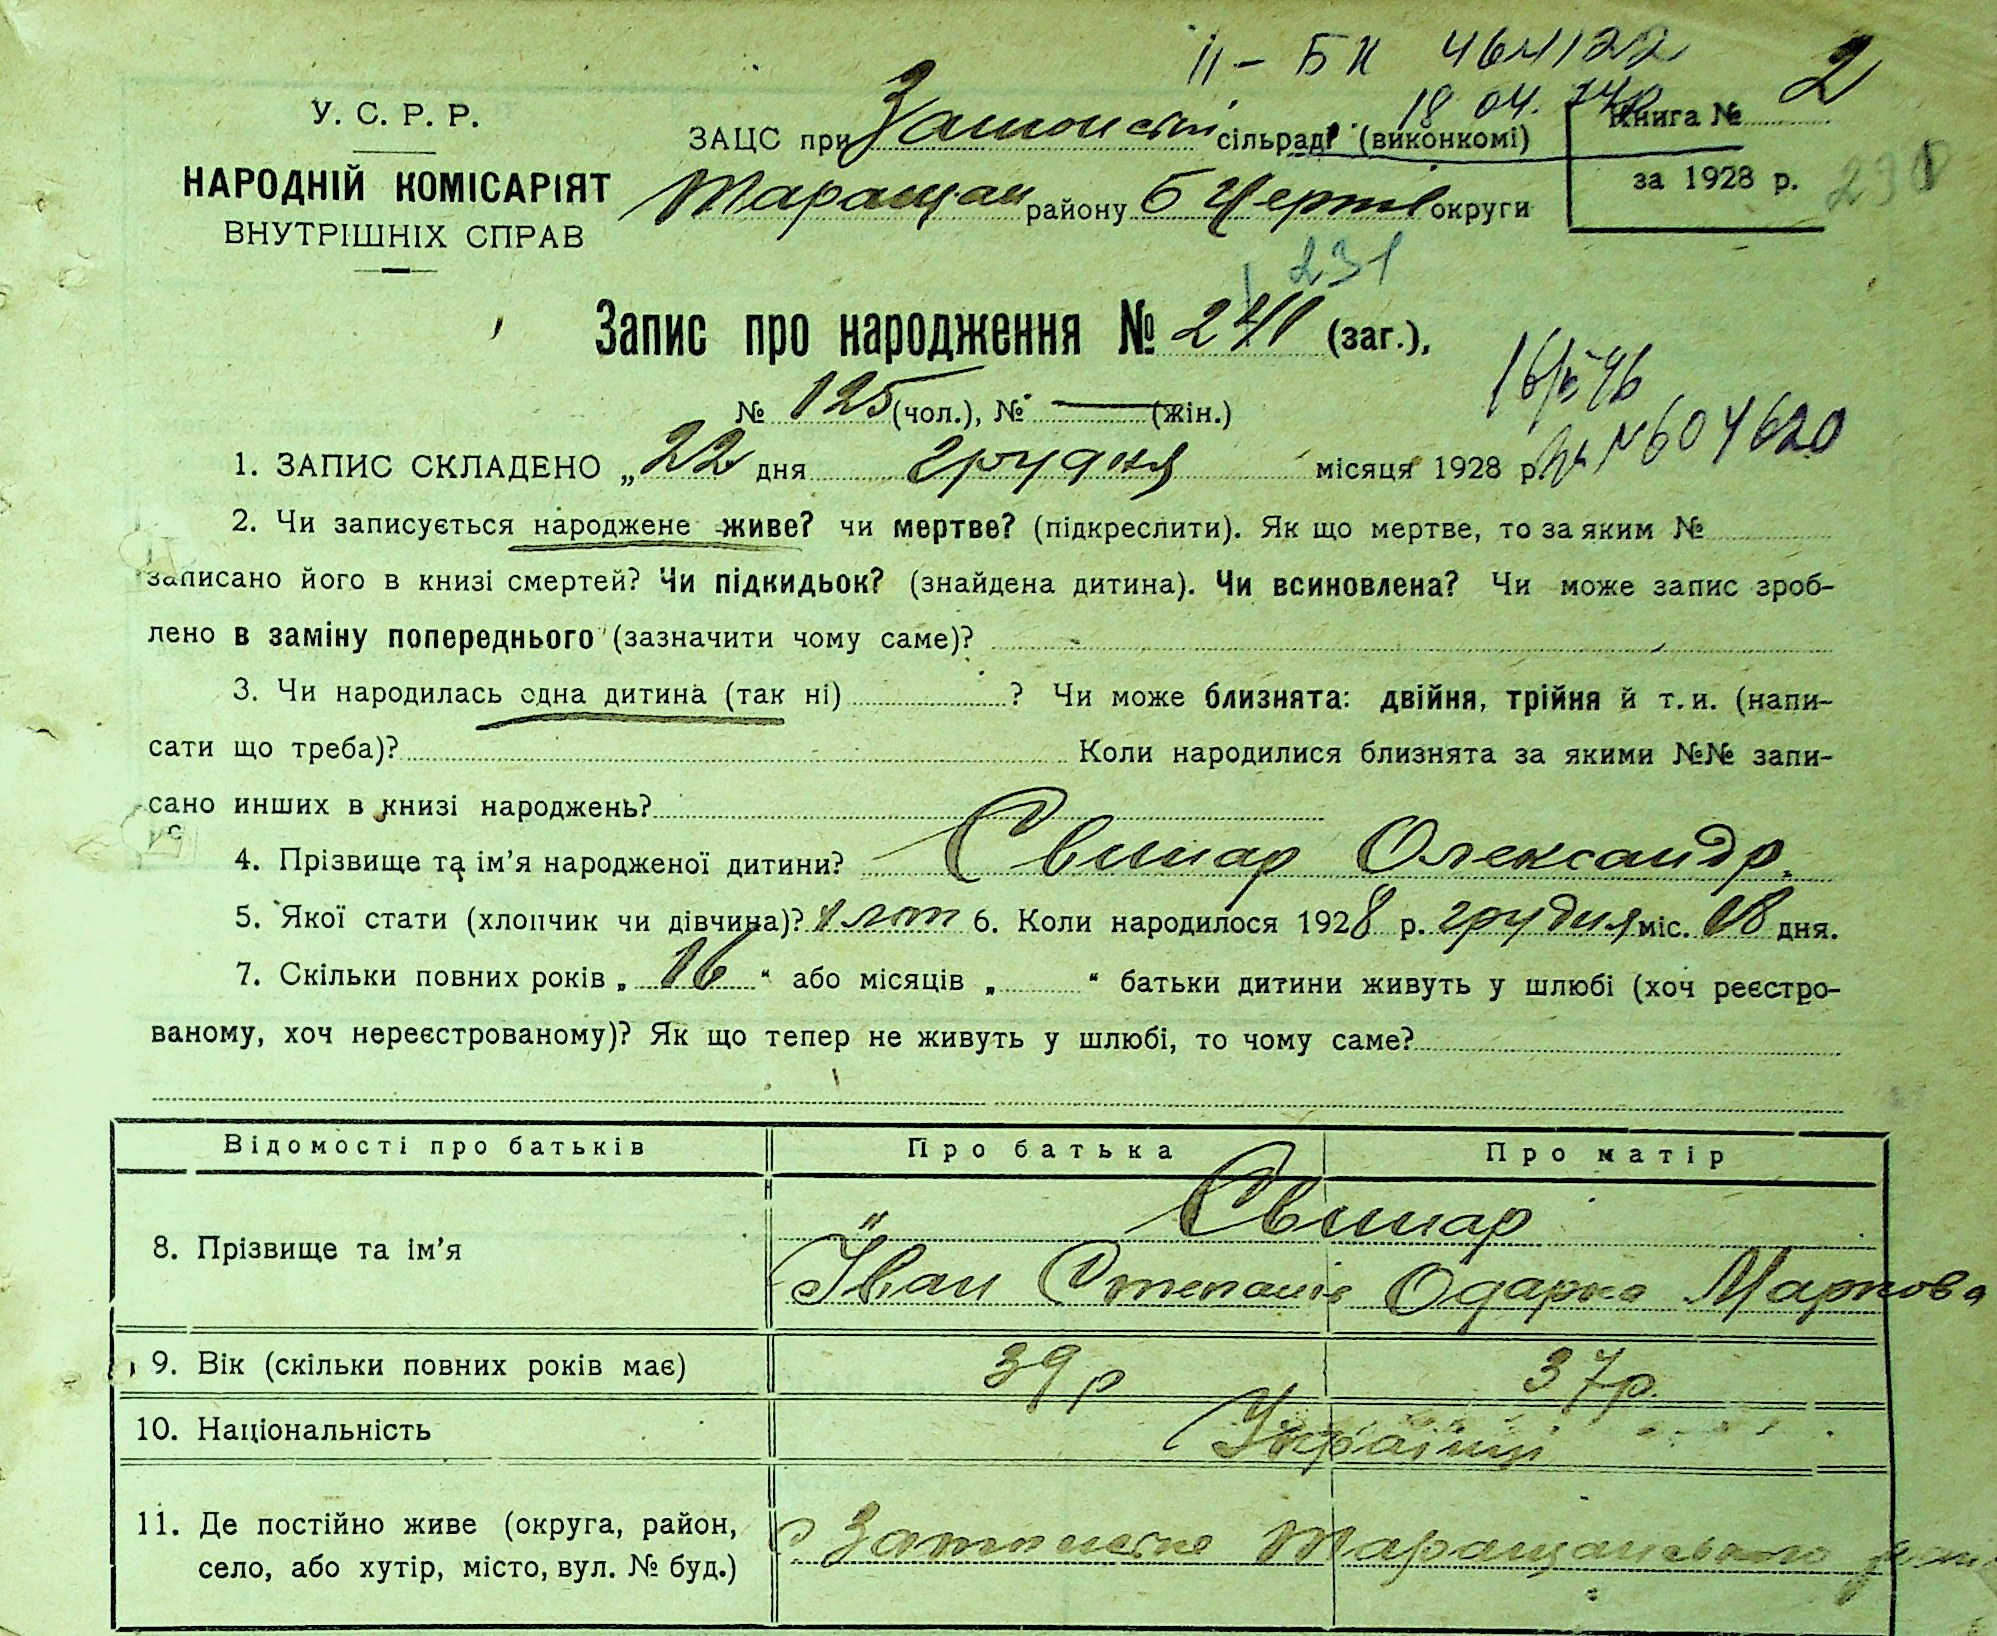 II – БК 464122
18 04. 74р
У. С. Р. Р.
НАРОДНІЙ КОМІСАРІЯТ
ВНУТРІШНІХ СПРАВ
ЗАЦС при сільраді (виконкомі)
Таращан району Б Церків округи
Книга № 2
за 1928 р.
231
Запис про народження № (заг.),
№ 125 (чол.), № — (жін.)
604620
1. ЗАПИС СКЛАДЕНО „22 дня грудня місяця 1928 р.
2. Чи записується народжене живе? чи мертве? (підкреслити). Як що мертве, то за яким №
записано його в книзі смертей? Чи підкидьок? (знайдена дитина). Чи всиновлена? Чи може запис зроб-
лено в заміну попереднього (зазначити чому саме)?
3. Чи народилась одна дитина (так ні) ? Чи може близнята: двійня, трійня й т. и. (напи-
сати що треба)? Коли народилися близнята за якими №№ запи-
сано инших в книзі народжень?
4. Прізвище та ім’я народженої дитини? Свинар Олександр.
5. Якої стати (хлопчик чи дівчина)? 6. Коли народилося 1928 р. грудня міс. 18 дня.
7. Скільки повних років „ 16 “ або місяців „ “ батьки дитини живуть у шлюбі (хоч реєстро-
ваному, хоч нереєстрованому)? Як що тепер не живуть у шлюбі, то чому саме?
Відомості про батьків Про батька Про матір
8. Прізвище та ім’я Свинар
Іван Степанів Одарка Маркова
9. Вік (скільки повних років має) 39 р 37 р.
10. Національність Українці
11. Де постійно живе (округа, район,
село, або хутір, місто, вул. № буд.) Таращанського